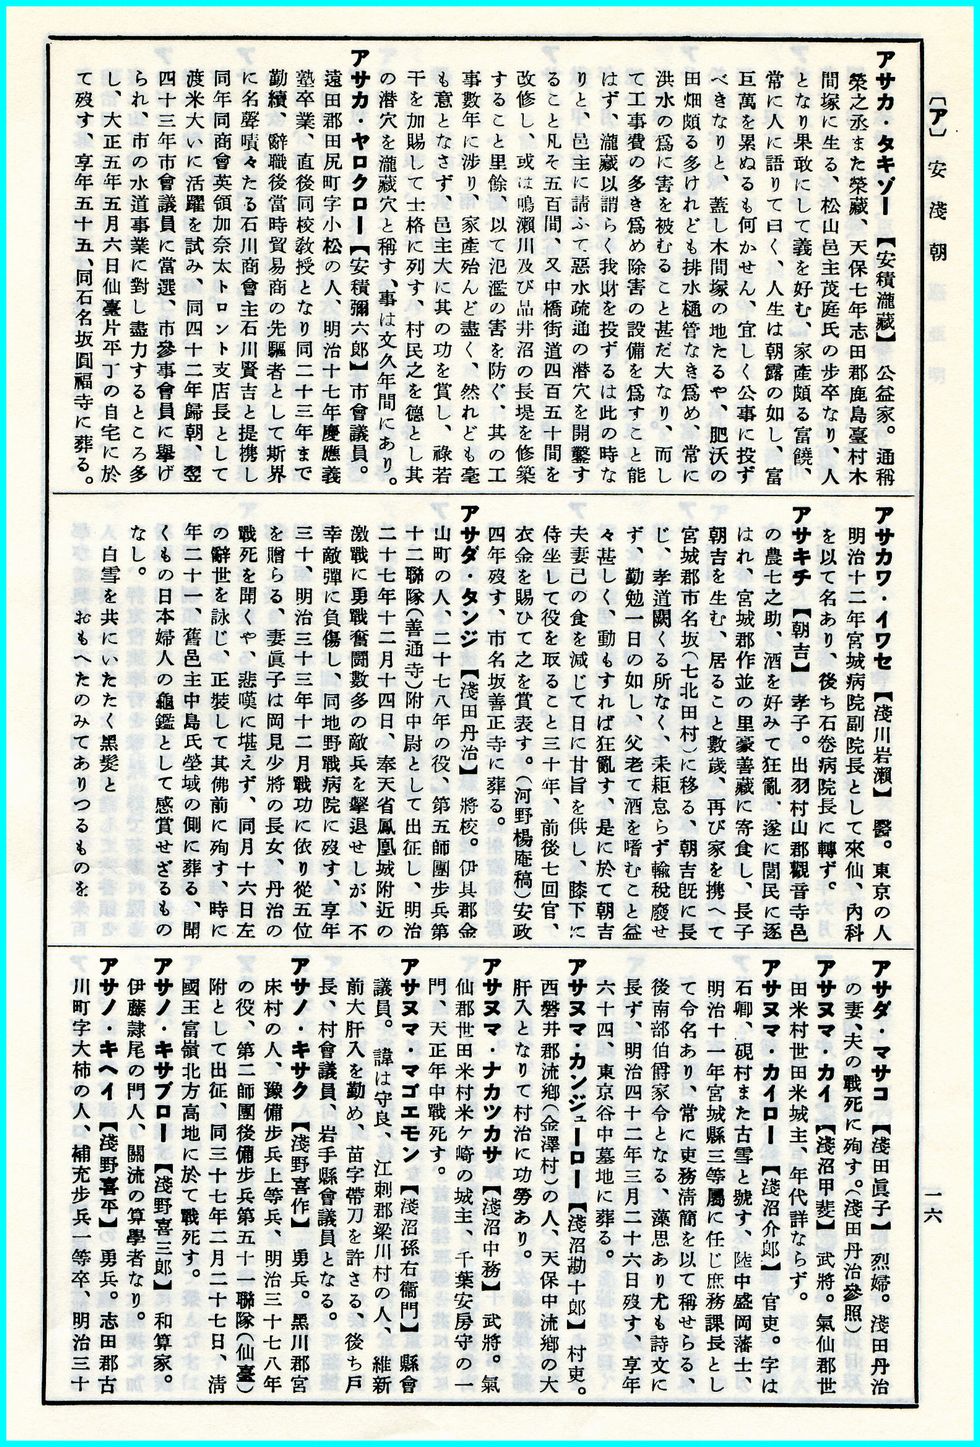 〔ア〕 安 淺 朝
一六
アサカ・タキゾー【安積瀧藏】公益家。通稱
榮之丞また榮藏、天保七年志田郡鹿島臺村木
間塚に生る、松山邑主茂庭氏の步卒なり、人
となり果敢にして義を好む、家產頗る富饒、
常に人に語りて曰く、人生は朝露の如し、富
巨萬を累ぬるも何かせん、宜しく公事に投ず
べきなりと、蓋し木間塚の地たるや、肥沃の
田畑頗る多けれども排水樋管なき爲め、常に
洪水の爲に害を被むること甚だ大なり、而し
て工事費の多き爲め除害の設備を爲すこと能
はず、瀧藏以謂らく我財を投ずるは此の時な
りと、邑主に請ふて惡水疏通の潜穴を開鑿す
ること凡そ五百間、又中橋街道四百五十間を
改修し、或は鳴瀬川及び品井沼の長堤を修築
すること里餘、以て氾濫の害を防ぐ、其の工
事數年に涉り、家產殆んど盡く、然れども毫
も意となさず、邑主大に其の功を賞し、祿若
干を加賜して士格に列す、村民之を德とし其
の潜穴を瀧藏穴と稱す、事は文久年間にあり。
アサカ・ヤロクロー【安積彌六郎】市會議員。
遠田郡田尻町字小松の人、明治十七年慶應義
塾卒業、直後同校敎授となり同二十三年まで
勤續、辭職後當時貿易商の先驅者として斯界
に名聲嘖々たる石川商會主石川賢吉と提携し
同年同商會英領加奈太トロント支店長として
渡米大いに活躍を試み、同四十二年歸朝、翌
四十三年市會議員に當選、市參事會員に擧げ
られ、市の水道事業に對し盡力するところ多
し、大正五年五月六日仙臺片平丁の自宅に於
て歿す、享年五十五、同石名坂圓福寺に葬る。
アサカワ・イワセ【淺川岩瀨】醫。東京の人
明治十二年宮城病院副院長として來仙、內科
を以て名あり、後ち石卷病院長に轉ず。
アサキチ【朝吉】孝子。出羽村山郡觀音寺邑
の農七之助、酒を好みて狂亂、遂に閭民に逐
はれ、宮城郡作並の里豪善藏に寄食し、長子
朝吉を生む、居ること數歲、再び家を携へて
宮城郡市名坂(七北田村)に移る、朝吉旣に長
じ、孝道闕くる所なく、耒耟怠らず輸稅廢せ
ず、勤勉一日の如し、父老て酒を嗜むこと益
々甚しく、動もすれば狂亂す、是に於て朝吉
夫妻己の食を減じて日に甘旨を供し、膝下に
侍坐して役を取ること三十年、前後七回官、
衣金を賜ひて之を賞表す。(河野楊庵稿)安政
四年歿す、市名坂善正寺に葬る。
アサダ・タンジ【淺田丹治】將校。伊具郡金
山町の人、二十七八年の役、第五師團步兵第
十二聯隊(善通寺)附中尉として出征し、明治
二十七年十二月十四日、奉天省鳳凰城附近の
激戰に勇戰奮鬪數多の敵兵を擊退せしが、不
幸敵彈に負傷し、同地野戰病院に歿す、享年
三十、明治三十三年十二月戰功に依り從五位
を贈らる、妻眞子は岡見少將の長女、丹治の
戰死を聞くや、悲嘆に堪えず、同月十六日左
の辭世を詠じ、正裝して其佛前に殉す、時に
年二十一、舊邑主中島氏塋域の側に葬る、聞
くもの日本婦人の龜鑑として感賞せざるもの
なし。
白雪を共にいたたく黑髮と
おもへたのみてありつるものを
アサダ・マサコ【淺田眞子】烈婦。淺田丹治
の妻、夫の戰死に殉す。(淺田丹治參照)
アサヌマ・カイ【淺沼甲斐】武將。氣仙郡世
田米村世田米城主、年代詳ならず。
アサヌマ・カイロー【淺沼介郞】官吏。字は
石卿、硯村また古雪と號す、陸中盛岡藩士、
明治十一年宮城縣三等屬に任じ庶務課長とし
て令名あり、常に吏務淸簡を以て稱せらる、
後南部伯爵家令となる、藻思あり尤も詩文に
長ず、明治四十二年三月二十六日歿す、享年
六十四、東京谷中墓地に葬る。
アサヌマ・カンジューロー【淺沼勘十郎】村吏。
西磐井郡流鄕(金澤村)の人、天保中流鄕の大
肝入となりて村治に功勞あり。
アサヌマ・ナカツカサ【淺沼中務】武將。氣
仙郡世田米村米ケ崎の城主、千葉安房守の一
門、天正年中戰死す。
アサヌマ・マゴエモン【淺沼孫右衞門】縣會
議員。諱は守良、江刺郡梁川村の人、維新
前大肝入を勤め、苗字帶刀を許さる、後ち戶
長、村會議員、岩手縣會議員となる。
アサノ・キサク【淺野喜作】勇兵。黑川郡宮
床村の人、豫備步兵上等兵、明治三十七八年
の役、第二師團後備步兵第五十一聯隊(仙臺)
附として出征、同三十七年二月二十七日、淸
國王富嶺北方高地に於て戰死す。
アサノ・キサブロー【淺野喜三郎】和算家。
伊藤隷尾の門人、關流の算學者なり。
アサノ・キヘイ【淺野喜平】勇兵。志田郡古
川町字大柿の人、補充步兵一等卒、明治三十